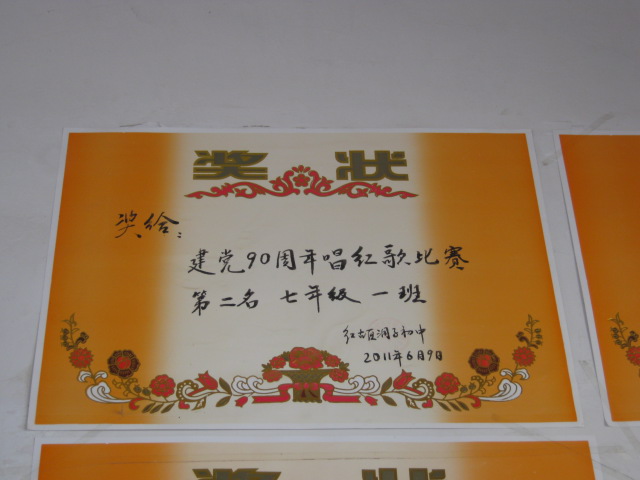 奖状
奖给：
建党90周年唱红歌比赛
第二名 七年级 一班
红古区涧子初中
2011年6月9日
奖状